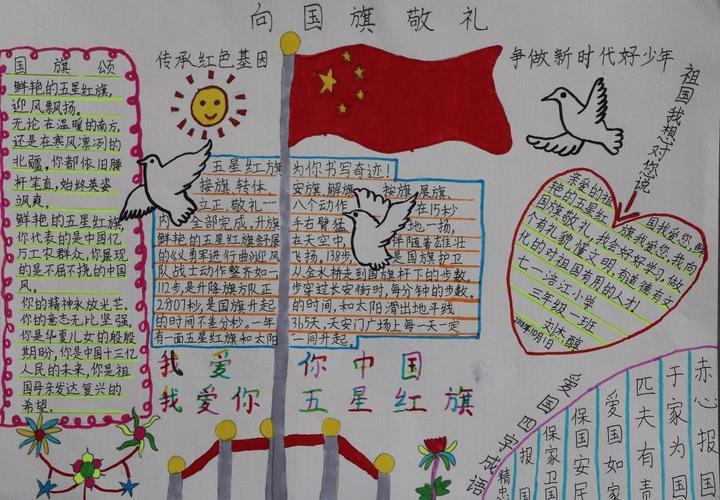 向国旗敬礼
传承红色基因
争做新时代好少年
国旗颂
鲜艳的五星红旗,
迎风飘扬。
无论在温暖的南方,
还是在寒风凛冽的
北疆,你都依旧腰
杆笔直,始终英姿
飒爽。
鲜艳的五星红旗,
你代表的是中国亿
万工农群众,你展现
的是不屈不挠的中国
风。
你的精神永放光芒。
你的意志无比坚强。
你是华夏儿女的殷殷
期盼,你是中国十三亿
人民的未来,你是祖
国母亲发达复兴的
希望。
五星红旗 为你书写奇迹!
接旗、转体、 安旗、解旗、 接旗、展旗、
立正、敬礼…… 八个动作 在15秒
内 全部完成。升旗 手右臂猛 地一扬,
鲜艳的五星红旗舒展 在天空中, 伴随着雄壮
的《义勇军进行曲》迎风 飞扬,138步, 是国旗护卫
队战士动作整齐如一, 从金水桥走到国旗杆下的步数。
112步,是升降旗方队正 步穿过长安街时,每分钟的步数。
2分07秒,是国旗升起 的时间,和太阳滑出地平线
的时间不差分秒。一年 365天,天安门广场上每一天一定
有一面五星红旗和太阳 一同升起。
我爱你中国
我爱你五星红旗
祖国我想对您说
亲爱的祖国我爱您,鲜
艳的五星红旗我爱您,我向
国旗敬礼,我会好好学习,做
个有礼貌懂文明,有道德有文
化的对祖国有用的人才!
七一涪江小学
三年级一班
10月1日
爱国四字成语
赤心报国
于家为国
匹夫有责
爱国如家
保国安民
保家卫国
精忠报国